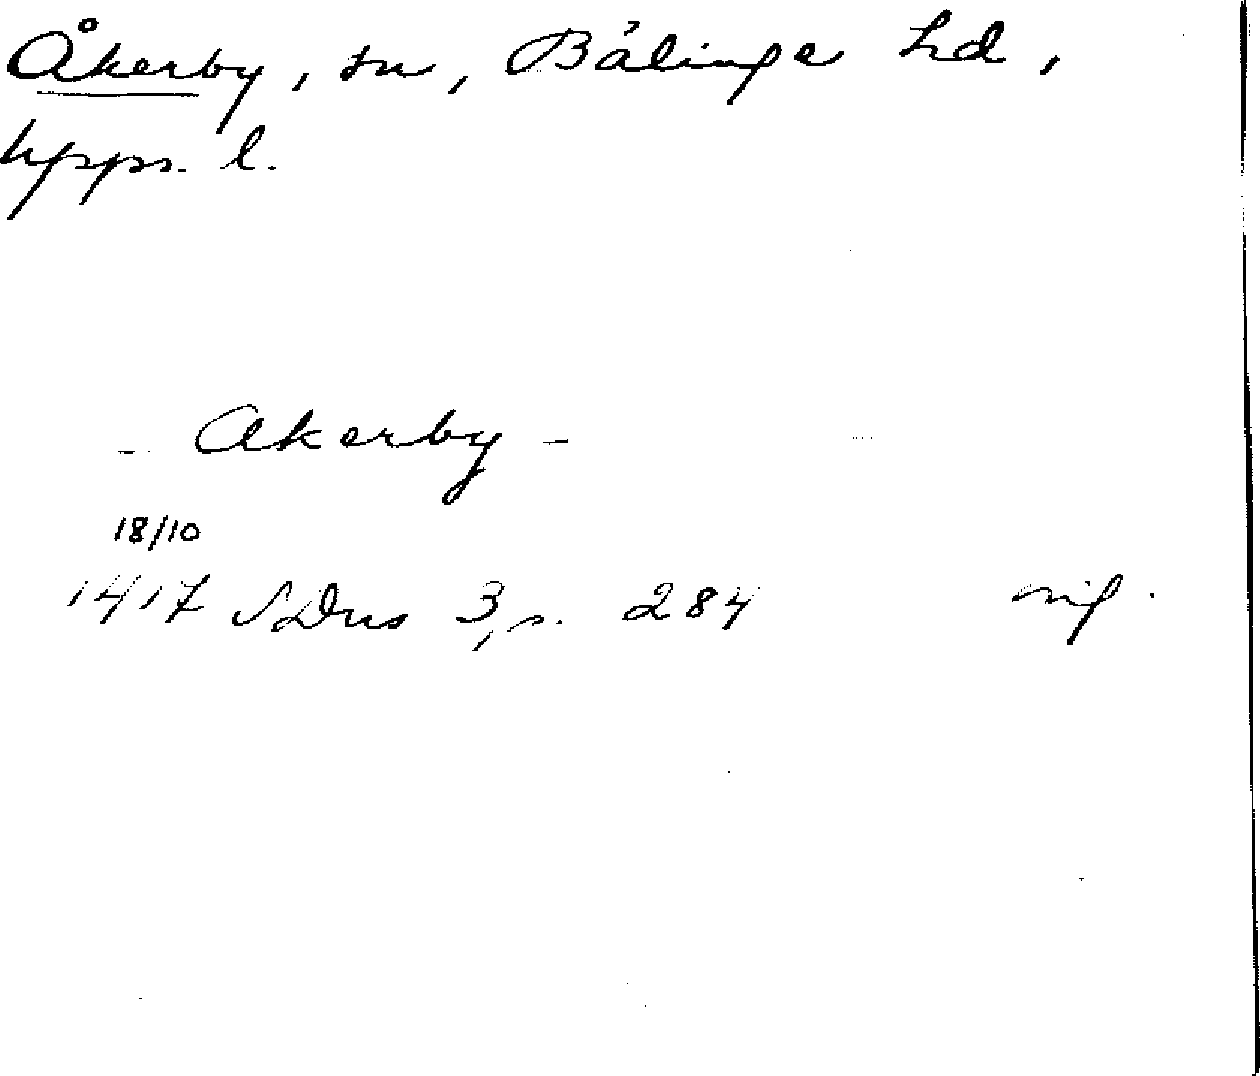 Åkerby, sn, Bälinge hd,
Upps. l.
- Akerby -
18/10
1417 SDns 3, s. 284